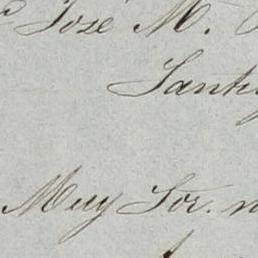 José M.
Santi
Muy Sor. n